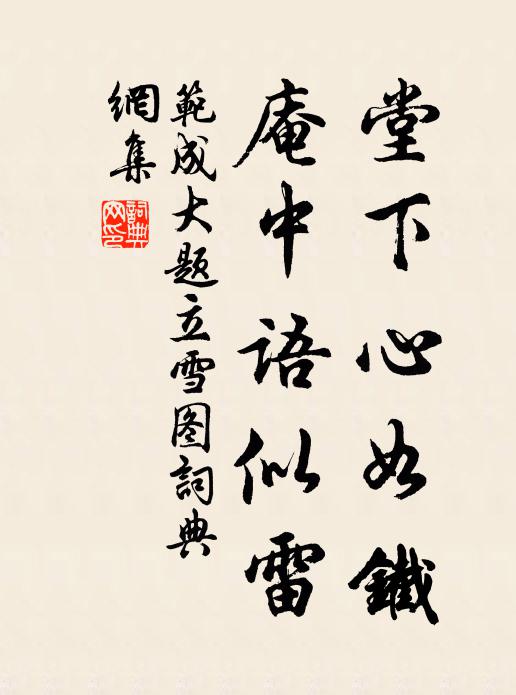 堂下心如鐵
庵中語似雷
範成大題立雪图詞典
網集
詞典网印